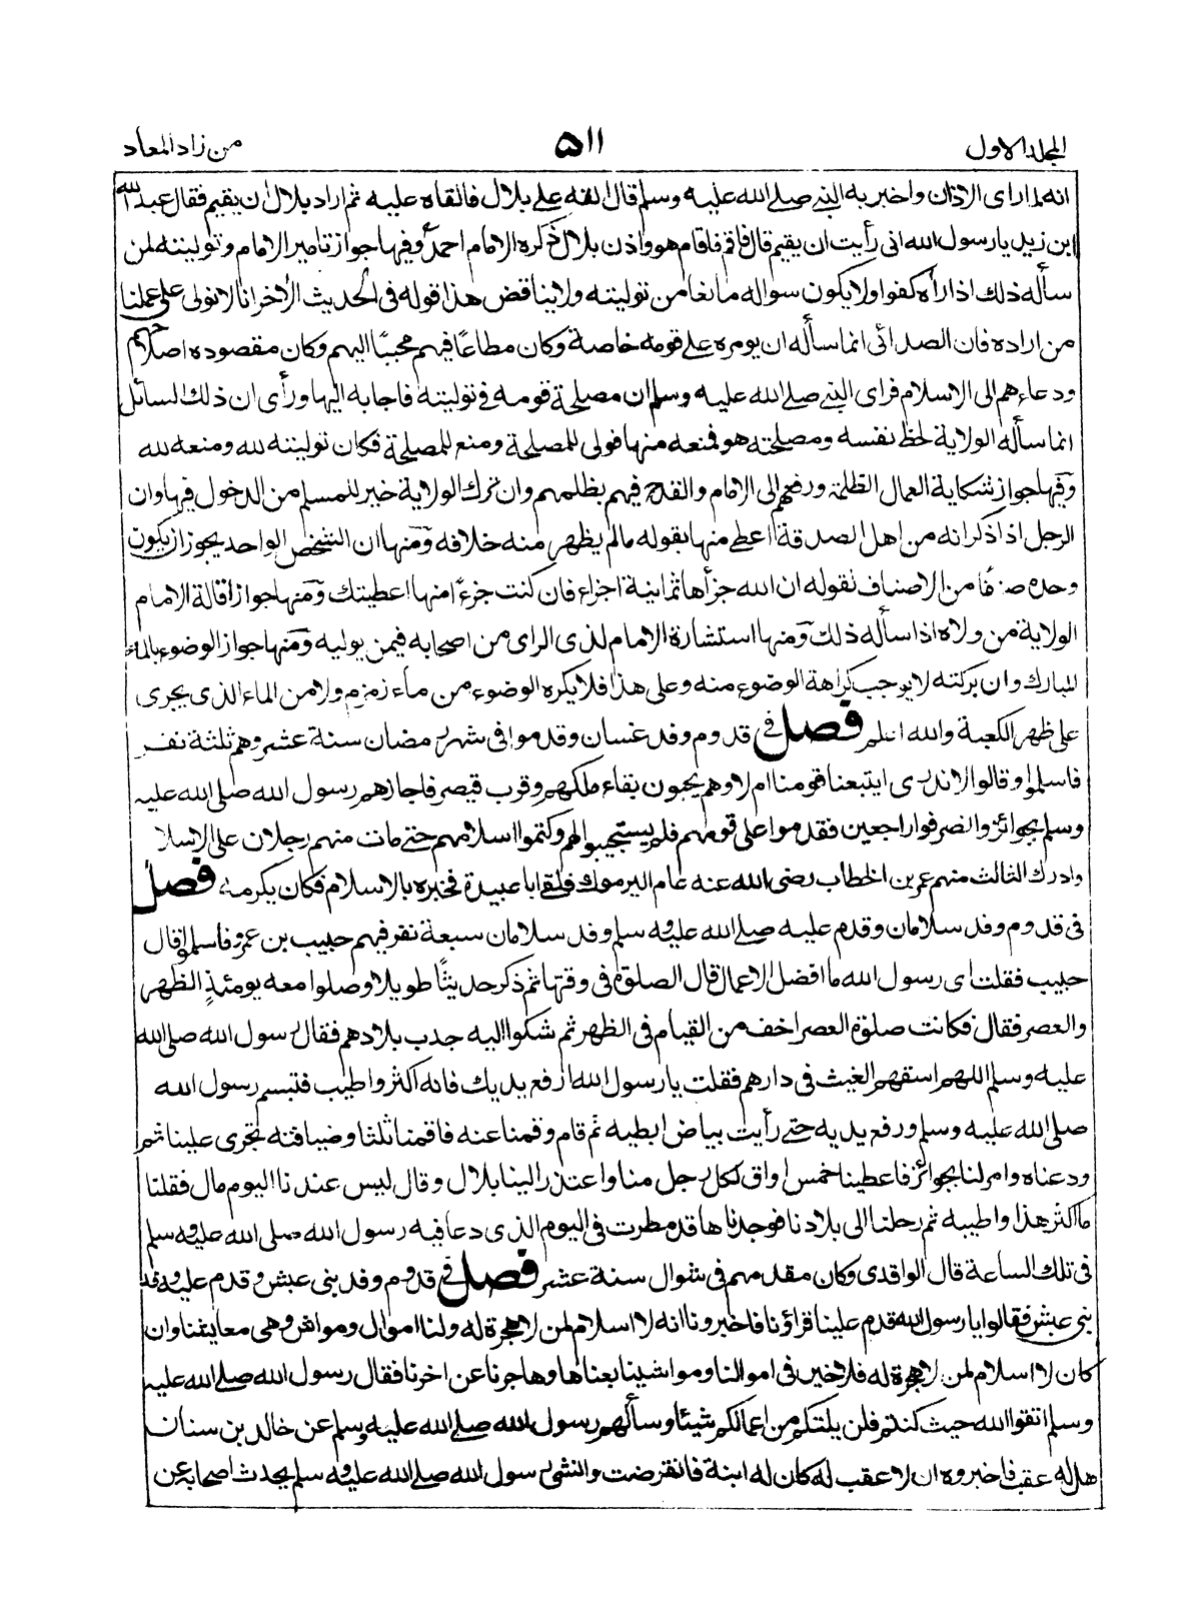 المجلد الاول
۵۱۱
من زاد المعاد
انه لما رأى الاذان واخبر به النبي صلى الله عليه وسلم قال القه على بلال فالقاه عليه ثم اراد بلال ان يقيم فقال عبد الله
ابن زيد يا رسول الله انى رأيت ان يقيم قال فاقم فاقام هو واذن بلال ذكره الامام احمد وفيها جواز تامير الامام وتوليته لمن
سأله ذلك اذا رأه كفوا ولا يكون سواله مانعا من توليته ولا يناقض هذا قوله فى الحديث الأخر انا لا نولى على عملنا
من اراده فان الصدائى انما سأله ان يومره على قومه خاصة وكان مطاعًا فيهم محببًا اليهم وكان مقصوده اصلاحهم
ودعاءهم الى الاسلام فراى النبي صلى الله عليه وسلم ان مصلحة قومه فى توليته فاجابه اليها ورأى ان ذلك السائل
انما سأله الولاية لحظ نفسه ومصلحته هو فمنعه منها فولى للمصلحة ومنع للمصلحة فكان توليته لله ومنعه لله
وفيها جواز شكاية العمال الظلمة ورفعهم الى الامام والقدح فيهم بظلمهم وان ترك الولاية خير للمسلم من الدخول فيها وان
الرجل اذا ذكر انه من اهل الصدقة اعطى منها بقوله مالم يظهر منه خلافه ومنها ان الشخص الواحد يجوز ان يكون
وحده صنفا من الاصناف لقوله ان الله جزأها ثمانية اجزاء فان كنت جزءً امنها اعطيتك ومنها جواز اقالة الامام
الولاية من ولاه اذا سأله ذلك ومنها استشارة الامام لذى الراى من اصحابه فيمن يوليه ومنها جواز الوضوء بالماء
المبارك وان بركته لا يوجب كراهة الوضوء منه وعلى هذا فلا يكره الوضوء من ماء زمزم ولا من الماء الذى يجرى
على ظهر الكعبة والله اعلم فصل فى قدوم وفد غسان وقدموا فى شهر رمضان سنة عشر وهم ثلثة نفر
فاسلموا وقالوا لا ندرى ايتبعنا قومنا ام لا وهم يحبون بقاء ملكهم وقرب قيصر فاجازهم رسول الله صلى الله عليه
وسلم بجوائز وانصرفوا راجعين فقدموا على قومهم فلم يستجيبوا لهم وكتموا اسلامهم حتى مات منهم رجلان على الاسلا
وادرك الثالث منهم عمر بن الخطاب رضى الله عنه عام اليرموك فلقى ابا عبيدة فخبره بالاسلام فكان يكرمه فصل
فى قدوم وفد سلامان وقدم عليه صلى الله عليه وسلم وفد سلامان سبعة نفر فيهم حبيب بن عمرو فاسلموا قال
حبيب فقلت اى رسول الله ما افضل الاعمال قال الصلوة فى وقتها ثم ذكر حديثًا طويلا وصلوا معه يومئذٍ الظهر
والعصر فقال فكانت صلوة العصر اخف من القيام فى الظهر ثم شكوا اليه جدب بلادهم فقال رسول الله صلى الله
عليه وسلم اللهم اسقهم الغيث فى دارهم فقلت يا رسول الله ارفع يديك فانه اكثر واطيب فتبسم رسول الله
صلى الله عليه وسلم ورفع يديه حتى رأيت بياض ابطيه ثم قام وقمنا عنه فاقمنا ثلثا وضيافته تجرى علينا ثم
ودعناه وامر لنا بجوائز فاعطينا خمس اواق لكل رجل منا واعتذر الينا بلال وقال ليس عندنا اليوم مال فقلنا
ما اكثر هذا واطيبه ثم رحلنا الى بلادنا فوجدناها قد مطرت فى اليوم الذى دعا فيه رسول الله صلى الله عليه وسلم
فى تلك الساعة قال الواقدى وكان مقدمهم فى شوال سنة عشر فصل فى قدوم وفد بنى عبش وقدم عليه وفد
بنى عبش فقالوا يا رسول الله قدم علينا قراؤنا فاخبرونا انه لا اسلام لمن لا هجرة له ولنا اموال ومواش وهى معايشنا وان
كان لا اسلام لمن لا هجرة له فلا خير فى اموالنا ومواشينا بعناها وهاجرنا عن اخرنا فقال رسول الله صلى الله عليه
وسلم اتقوا الله حيث كنتم فلن يلتكم من اعمالكم شيئا وسألهم رسول الله صلى الله عليه وسلم عن خالد بن سنان
هل له عقب فاخبروه ان لا عقب له كان له ابنة فانقرضت وانشى رسول الله صلى الله عليه وسلم يحدث اصحابه عن